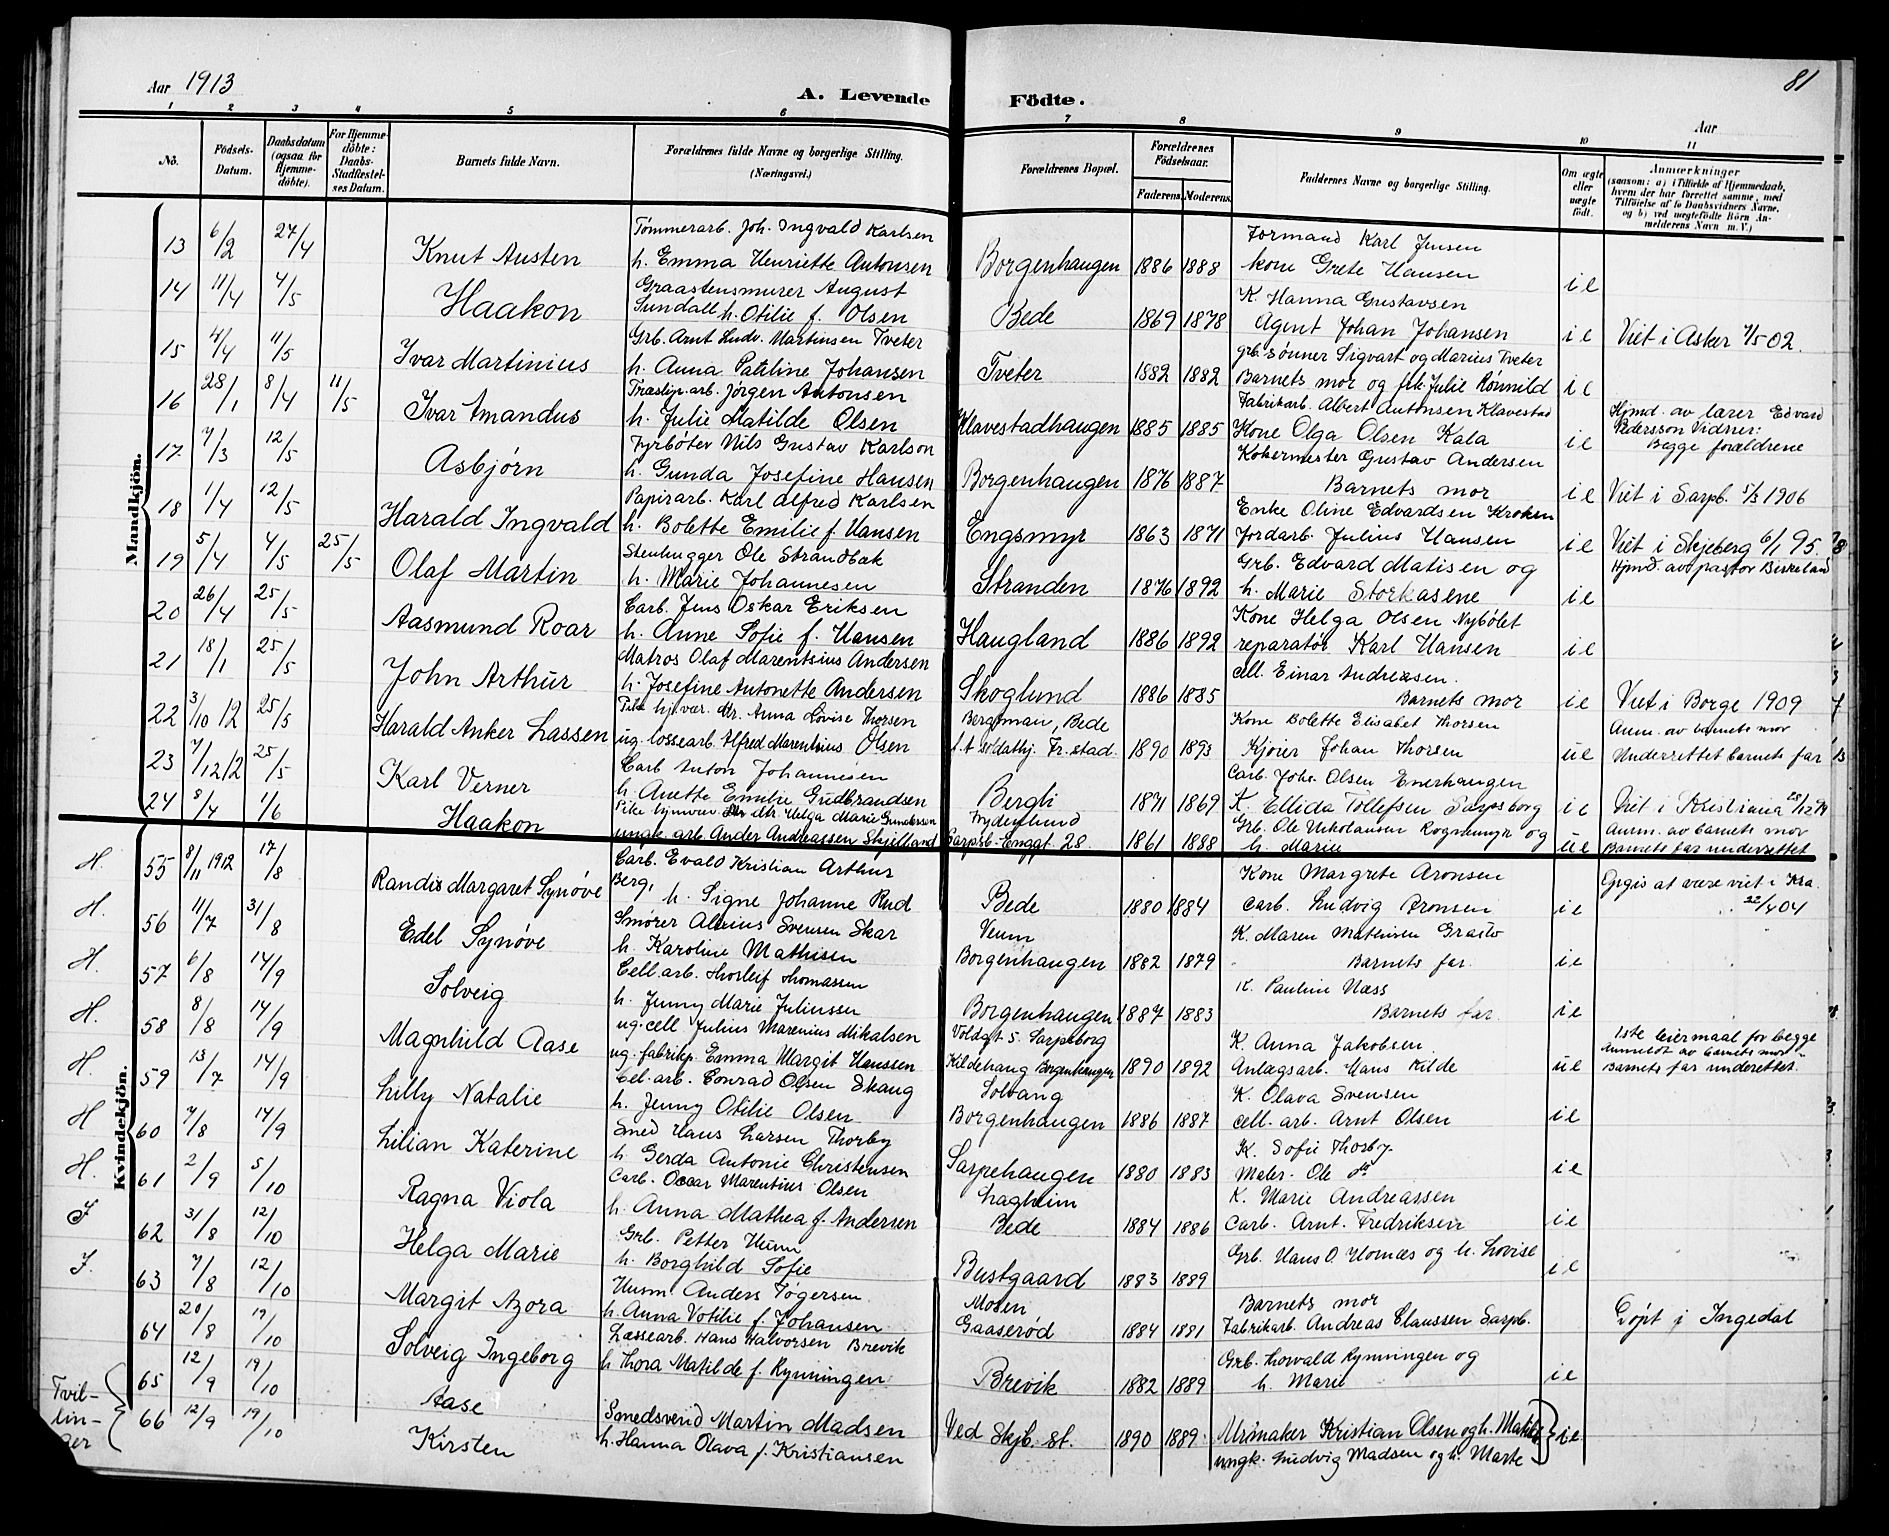 Aar 1913
A. Levende Födte.
81
Aar
1 2 3 4 5 6 7 8 9 10 11
No.
Födsels-Datum.
Daabsdatum (ogsaa for Hjemme-döbte).
For Hjemme-döbte: Daabs-Stadfæstel-ses Datum.
Barnets fulde Navn.
Forældrenes fulde Navne og borgerlige Stilling. (Næringsvei.)
Forældrenes Bopæl.
Forældrenes Födselsaar.
Faderens. Moderens.
Faddernes Navne og borgerlige Stilling.
Om ægte eller uægte födt.
Anmærkninger
(saasom: a) i Tilfælde af Hjemmedaab, hvem der har forrettet samme, med Tilföielse af to Daabsvidners Navne, og b) ved uægtefödte Börn An-melderens Navn m. V.)
Mandkjön.
13 6/2 27/4 Knut Austen Tømmerarb. Joh. Ingvald Karlsen
h. Emma Henriette Antonsen Borgenhaugen 1886 1888 Formand Karl Jensen
kone Grete Hansen i e
14 11/4 4/5 Haakon Graastensmurer August
Sundall h. Otilie f. Olsen Bede 1869 1878 K. Hanna Gustavsen
Agent Johan Johansen i e Viet i Asker 4/5 02.
15 4/4 11/5 Ivar Martinius Grb. Arnt Ludv. Martinsen Tveter
h. Anna Pauline Johansen Tveter 1882 1882 grb. sønner Sigvart og Marius Tveter
Barnets mor og frk. Julie Rönnild i e
16 28/1 8/4 11/5 Ivar Amandus Træslip.arb. Jörgen Antonsen
h. Julie Matilde Olsen Klavestadhaugen 1885 1885 Fabrikarb. Albert Antonsen Klavestad
Kone Olga Olsen Kala i e Hjmd. av lærer Edvard
Pedersson Vidner:
Begge forældrene
17 7/3 12/5 Asbjørn Fyrbøter Nils Gustav Karlson
h. Gunda Josefine Hansen Borgenhaugen 1876 1887 Kokermester Gustav Andersen
Barnets mor i e Viet i Sarpb. 5/3 1906
18 1/4 12/5 Harald Ingvald Papirarb. Karl Alfred Karlsen
h. Bolette Emilie f. Hansen Engsmyr 1863 1871 Enke Oline Edvardsen Kroken
Jordarb. Julius Hansen i e Viet i Skjeberg 6/1 95.
19 5/4 4/5 25/5 Olaf Martin Stenhugger Ole Strandbak
h. Marie Johannesen Stranden 1876 1892 Grb. Edvard Matisen og
h. Marie Storkasene i e Hjmd. av pastor Birkeland
20 26/4 25/5 Aasmund Roar Carb. Jens Oskar Eriksen
h. Anne Sofie f. Hansen Haugland 1886 1892 Kone Helga Olsen Nybölet
reparatør Karl Hansen i e
21 18/1 25/5 John Arthur Matros Olaf Marentsius Andersen
h. Josefine Antonette Andersen Skoglund 1886 1885 cell. Einar Andreasen.
Barnets mor i e Viet i Borge 1909
22 3/10 12 25/5 Harald Anker Lassen Pike hj.vær. dtr. Anna Lovise Thorsen
ug. lossearb. Alfred Marentsius Olsen Bergtman, Bede
f. t. soldathj. Fr.stad. 1890 1893 Kone Bolette Elisabet Thorsen
Kjörer Johan Thorsen u e Anm. av barnets mor
Underrettet barnets far
23 7/12 12 25/5 Karl Verner Carb. Anton Johannesen
h. Anette Emilie Gudbrandsen Bergli 1871 1869 Carb. Johs. Olsen Enerhaugen
K. Ellida Tollefsen Sarpsborg i e Viet i Kristiania 28/12 94
24 8/4 1/6 Haakon Pike hjemvær. dtr. Helga Marie Gundersen
ungk. arb. Ander Andreassen Skjelland Frydenlund
Sarpsb. Enggt. 28. 1861 1888 Grb. Ole Nikolausen Rognemyr og
h. Marie u e Anm. av barnets mor
Barnets far underrettet
Kvindekjön.
H. 55 8/11 1912 17/8 Randis Margaret Synøve Carb. Evald Kristian Arthur
Berg, h. Signe Johanne Rud Bede 1880 1884 Kone Margrete Aronsen
Carb. Ludvig Aronsen i e Opgis at være viet i Kra.
22/4 04
H. 56 11/7 31/8 Edel Synøve Smörer Svensen Skar
h. Karoline Mathisen Veum
Borgenhaugen 1882 1879 K. Maren Mathisen
Barnets far. i e
H. 57 6/8 14/9 Solveig Cell.arb. Thorleif Thomassen
h. Jenny Marie Juliussen Borgenhaugen 1887 1883 K. Pauline Næss
Barnets far. i e
H. 58 8/8 14/9 Magnhild Aase ug. cell Julius Marenius Mikalsen
ug. fabrikp. Emma Margit Hanssen Voldgt 5. Sarpsborg
Kildehaug Borgenhaugen 1890 1892 K. Anna Jakobsen
Anlægsarb. Hans Kilde u e 1ste leiermaal for begge
Anmeldt av barnets mor
Barnets far underettet.
H. 59 13/7 14/9 Lilly Natalie Cel. arb. Conrad Olsen Skaug
h. Jenny Otilie Olsen Solvang
Borgenhaugen 1886 1887 K. Olava Svensen
cell. arb. Arnt Olsen i e
H 60 7/8 14/9 Lilian Katerine Smed Hans Larsen Thorby
h. Gerda Antonie Christensen Sarpehaugen 1880 1883 K. Sofie Thorby.
Maler. Ole do i e
H. 61 2/9 5/10 Ragna Viola Carb. Oscar Marentius Olsen
h. Anna Mathea f. Andersen Lagheim
Bede 1884 1886 K. Marie Andreassen
Carb. Arnt. Fredriksen i e
I 62 31/8 12/10 Helga Marie Grb. Petter Hunn
h. Borghild Sofie Bustgaard 1883 1889 Grb. Hans O. Homæs og h. Lovise i e
I. 63 7/8 12/10 Margit Azora Husm Anders Togersen
h. Anna Votilie f. Johansen Mosen
Gaaserød 1884 1881 Barnets mor
Fabrikarb. Andreas Claussen Sarpb. Døpt i Ingedal
64 20/8 19/10 Solveig Ingeborg Lassearb. Hans Halvorsen Brevik
h Thora Matilde f. Rynningen Brevik 1882 1889 Grb. Thorvald Rynningen og
h. Marie i e
Tvil-lin-ger
65 12/9 19/10 Aase
66 12/9 19/10 Kirsten
Smedsvend Martin Madsen
h. Hanna Olava f. Kristiansen Ved Skjb. st. 1890 1889 Urmaker Kristian Olsen og h. Matilde
ungk. Ludvig Madsen og h. Marte i e